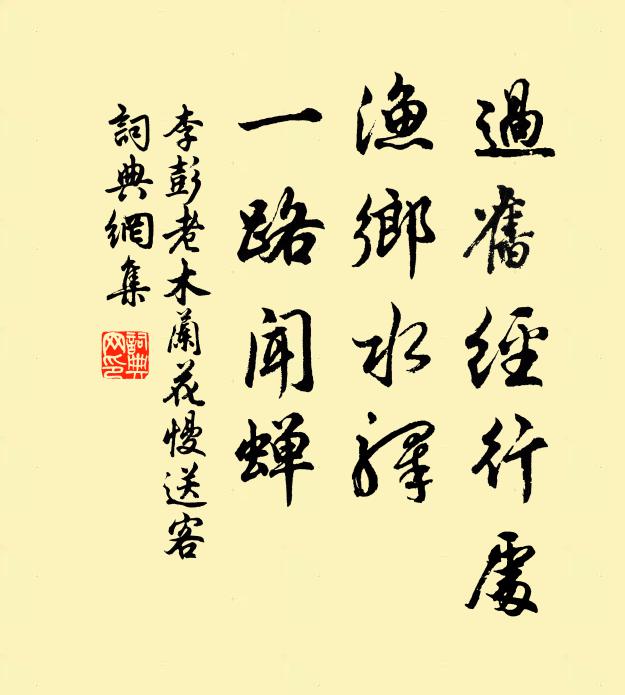 過舊經行處
渔鄉水驛
一路闻蝉
李彭老木蘭花慢送客
詞典網集
詞典网印